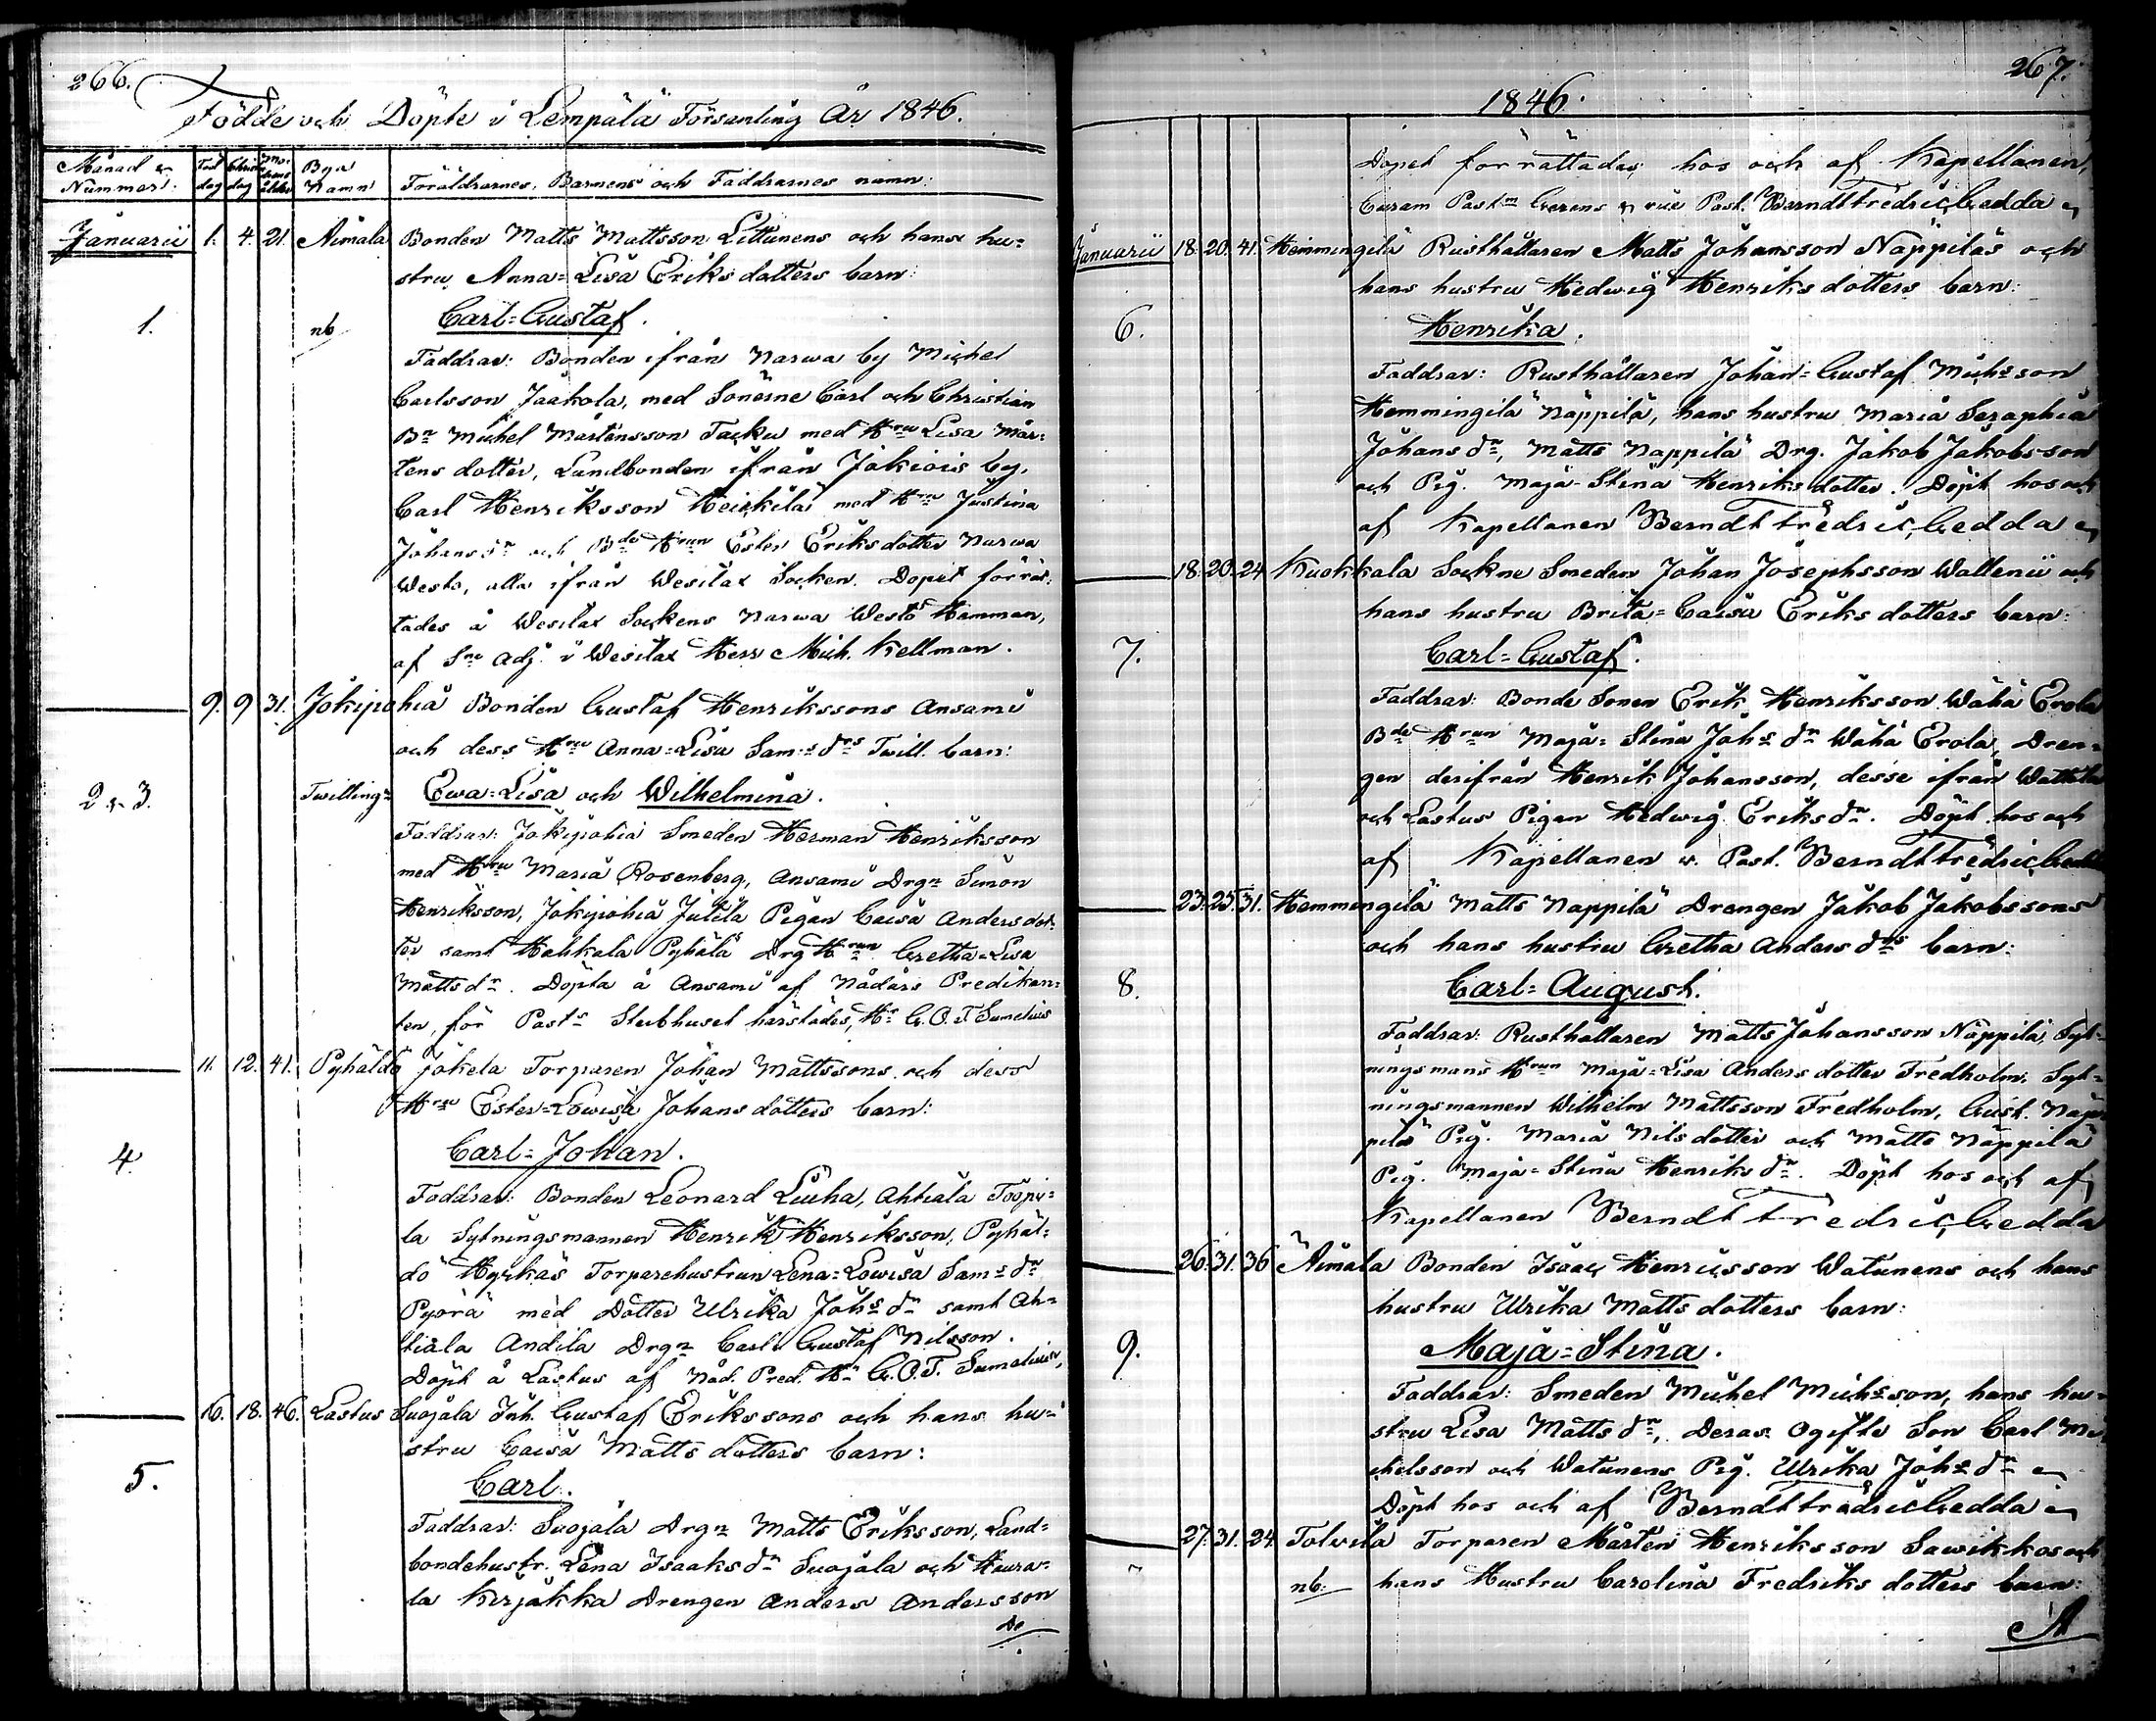 266.
Födde och Döpte i Lempälä Församling År 1846.
Månad & Nummer. Föd dag Christn dag Modrens ålder Bya Namn Föräldrarnes, Barnens och Faddrarnes namn:
Januarii 1. 4. 21. Aimala Bonden Matts Mattsson Littunens och hans hu=
stru Anna=Lisa Eriks dotters barn:
1. nb Carl=Gustaf.
Faddrar: Bonden ifrån Narwa by Michel
Carlsson Jaakola, med Sönerne Carl och Christian
Bn Michel Mårtensson Tacku med Hru Lisa Mår=
tens dotter, Landbonden ifrån Jokiois by,
Carl Henriksson Heickilä med Hru Justina
Johans dr och Bde Hrun Ester Eriksdotter Narwa
Westo, alla ifrån Wesilax Socken. Dopet förrät=
tades å Wesilax Sockens Narwa Westo Hemman,
af Sne Adj. i Wesilax Herr Mich. Hellman.
9. 9 31. Jokipohia Bonden Gustaf Henrikssons Ansami
och dess Hru Anna=Lisa Sam:s drs Twill. barn:
2 & 3. Twilling: Ewa=Lisa och Wilhelmina.
Faddrar: Jokipohia Smeden Herman Henriksson
med Hru Maria Rosenberg, Ansami Drgn Simon
Henriksson, Jokipohia Jutila Pigan Caisa Anders dot=
ter samt Hahkala Pyhälä Drg Hrun Gretha=Lisa
Matts dr. Döpta å Ansami af Nådårs Predikan=
ten, för Past:s Sterbhuset härstädes, Hr G. O. F. Sumelius
11. 12. 41. Pyhäldö Jokela Torparen Johan Mattssons och dess
Hru Ester=Lowisa Johans dotters barn:
4. Carl=Johan.
Faddrar: Bonden Leonard Liuha, Ahtiala Toopi=
la Sytningsmannen Henrik Henriksson, Pyhäl=
dö Hyrkäs Torparehustrun Lena=Lowisa Sam:s dr
Pyörä med Dotter Ulrika Joh:s dr samt Ah=
tiala Andila Drgn Carl Gustaf Nilsson.
Döpt å Lastus af Nåd. Pred. Hr G. O. F. Sumelius,
16. 18. 46. Lastus Suojala Inh. Gustaf Erikssons och hans hu=
stru Caisa Matts dotters barn:
5. Carl.
Faddrar: Suojala Drgn Matts Eriksson, Land=
bondehustr. Lena Isaaks dr Suojala och Kura=
la Kirjakka Drengen Anders Andersson
Do
267.
1846.
Dopet förrättades hos och af Kapellanen,
Curam Past:m Gerens & vice Past. Berndt Fredric Gedda
Januarii 18. 20. 41. Hemmingilä Rusthållaren Matts Johansson Näppiläs och
hans hustru Hedwig Henriks dotters barn:
6. Henrika.
Faddrar: Rusthållaren Johan=Gustaf Mich:sson
Hemmingilä Näppilä, hans hustru Maria Seraphia
Johans dr, Matts Näppilä Drg. Jakob Jakobsson
och Pig. Maja=Stina Henriks dotter. Döpt hos och
af Kapellanen Berndt Fredric Gedda
18. 20. 24 Kuokkala Sockne Smeden Johan Josephsson Wallenii och
hans hustru Brita=Caisa Eriks dotters barn:
7. Carl=Gustaf.
Faddrar: Bonde Sonen Erik Henriksson Wähä Erola
Bde Hrun Maja=Stina Joh:s dr Wähä Erola, Dren=
gen derifrån Henrik Johansson, desse ifrån
och Lastus Pigan Hedwig Eriks dr. Döpt hos och
af Kapellanen v. Past. Berndt Fredric Gedda
23. 25. 31. Hemmingilä Matts Näppilä Drengen Jakob Jakobssons
och hans hustru Gretha Anders drs barn:
8. Carl=August.
Faddrar: Rusthållaren Matts Johansson Näppilä, Syt=
ningsmans Hrun Maja=Lisa Anders dotter Fredholm, Syt=
ningsmannen Wilhelm Mattsson Fredholm, Gust. Näp=
pilä Pig. Maria Nils dotter och Matts Näppilä
Pig. Maja=Stina Henriks dr. Döpt hos och af
Kapellanen Berndt Fredric Gedda
26. 31. 36 Aimala Bonden Isaac Henricsson Watunens och hans
hustru Ulrika Matts dotters barn:
9. Maja=Stina.
Faddrar: Smeden Michel Mich:sson, hans hu=
stru Lisa Matts dr, Deras Ogifte Son Carl Mi=
chelsson och Watunens Pig. Ulrika Joh:s dr
Döpt hos och af Berndt Fredric Gedda
27. 31. 24. Tolwila Torparen Mårten Henriksson Sawikkos och
nb: hans Hustru Carolina Fredriks dotters barn:
A